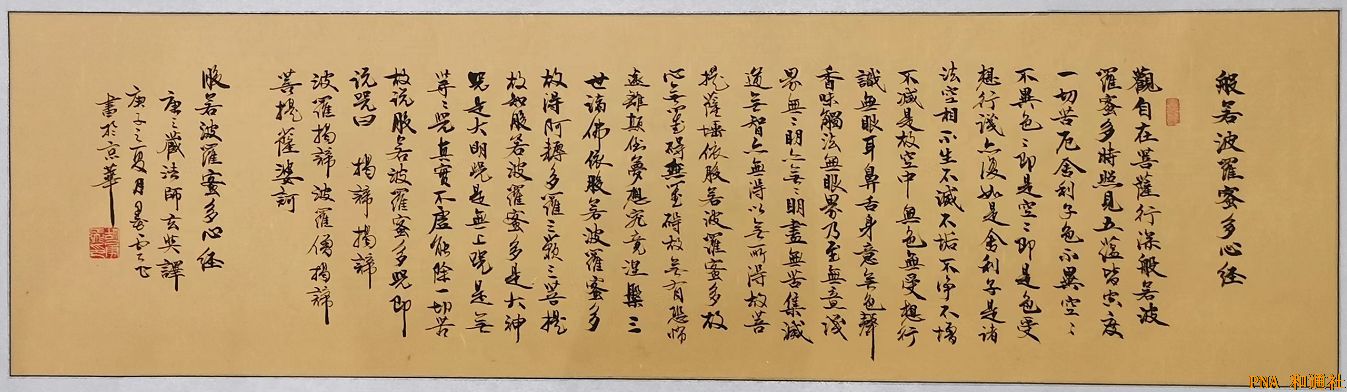 般若波羅蜜多心经
觀自在菩薩行深般若波
羅蜜多時照見五蕴皆空度
一切苦厄舍利子色不異空〻
不異色〻即是空〻即是色受
想行識亦復如是舍利子是诸
法空相不生不滅不垢不净不增
不減是故空中無色無受想行
識無眼耳鼻舌身意無色聲
香味觸法無眼界乃至無意識
界無〻明亦無〻明盡無苦集滅
道無智亦無得以無所得故菩
提薩埵依般若波羅蜜多故
心無罣碍無罣碍故無有恐怖
遠離顛倒夢想究竟涅槃三
世诸佛依般若波羅蜜多
故得阿耨多羅三藐三菩提
故知般若波羅蜜多是大神
咒是大明咒是無上咒是無
等〻咒真實不虛能除一切苦
故说般若波羅蜜多咒即
说咒曰 揭諦揭諦
波羅揭諦波羅僧揭諦
菩提薩婆訶
般若波羅蜜多心经
唐三藏法師玄奘譯
庚子之夏月
書於京華
PNA 和通社